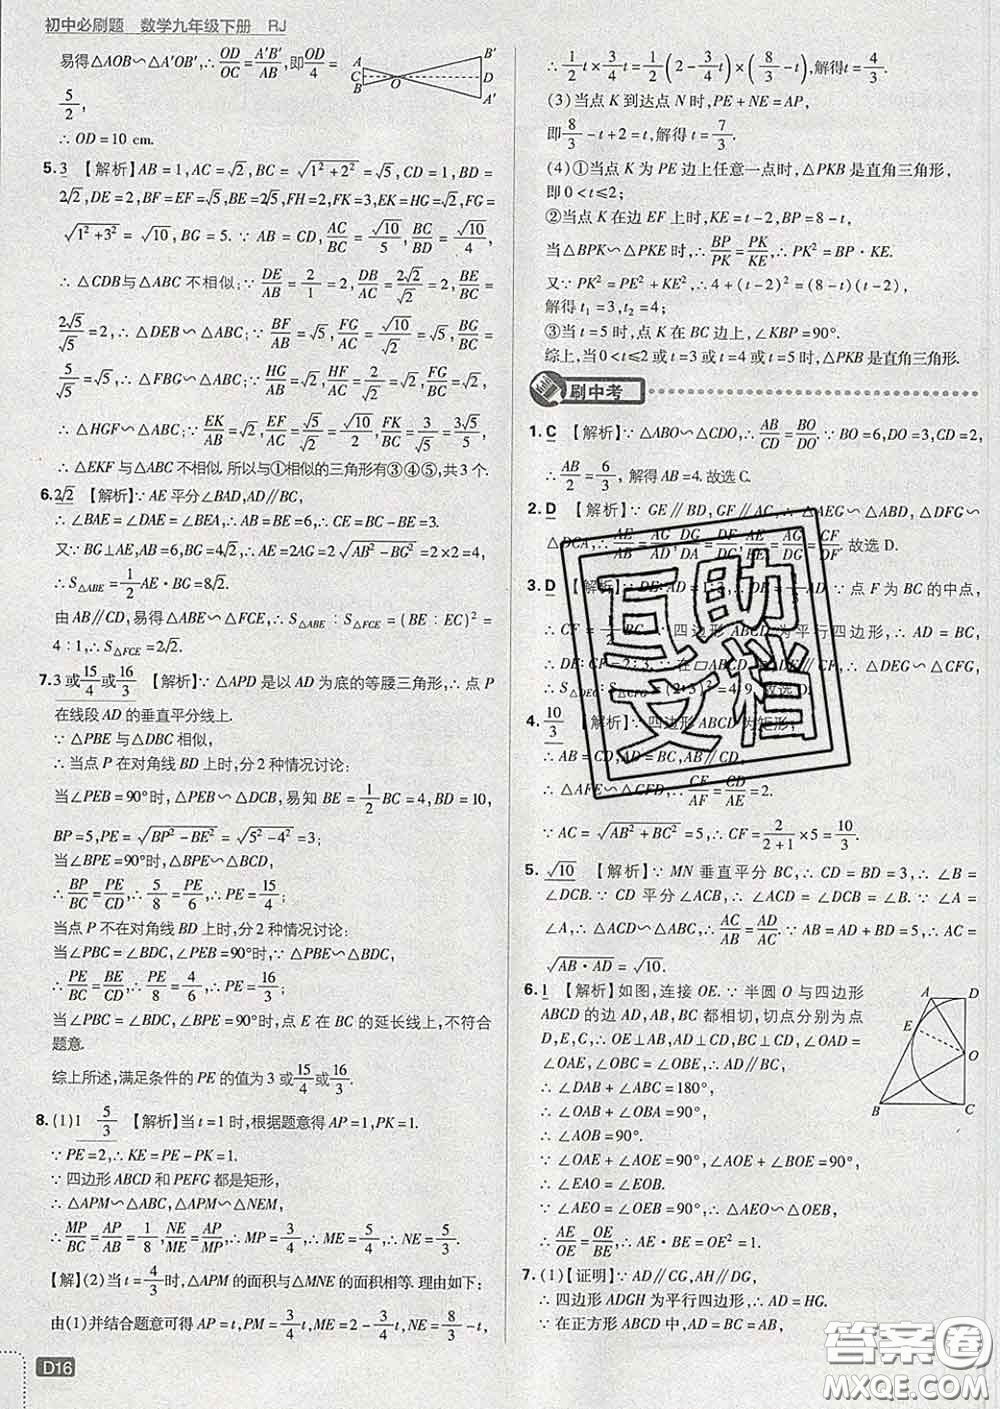 初中必刷题 数学九年级下册 RJ
易得△AOB∽△A'OB',∴OD/OC=A'B'/AB,即OD/4=
5/2,
∴OD=10 cm.
A
C
B
O
B'
D
A'
5.3 【解析】AB=1,AC=√2,BC=√(1²+2²)=√5,CD=1,BD=
2√2,DE=2,EB=2√5,FH=2,FK=3,EK=HG=√2,FG=
√(1²+3²)=√10,BG=5.∵AB=CD,AC/BC=√10/5,BC/BD=√10/4,
∴△CDB与△ABC不相似;∵DE/AB=2/1=2,DB/AC=2√2/√2=2,BE/BC=
2√5/√5=2,∴△DEB∽△ABC;∵BF/AB=√5,FG/AC=√10/√2=√5,BG/BC=
5/√5=√5,∴△FBG∽△ABC;∵HG/AB=√2,HF/AC=2/√2=√2,FG/BC=√10/√5=√2,
∴△HGF∽△ABC;∵EK/AB=√2,EF/AC=√10/√2=√5,FK/BC=3/√5=3√5/5,
∴△EKF与△ABC不相似.所以与①相似的三角形有③④⑤,共3个.
6.2√2 【解析】∵AE平分∠BAD,AD∥BC,
∴∠BAE=∠DAE=∠BEA,∴AB=BE=6,∴CE=BC-BE=3.
又∵BG⊥AE,AB=6,BG=4√2,∴AE=2AG=2√(AB²-BG²)=2×2=4,
∴S△ABE=1/2 AE·BG=8√2.
由AB∥CD,易得△ABE∽△FCE,∴S△ABE:S△FCE=(BE:EC)²=
4:1,∴S△FCE=2√2.
7.3或15/4或16/3 【解析】∵△APD是以AD为底的等腰三角形,∴点P
在线段AD的垂直平分线上.
∵△PBE与△DBC相似,
∴当点P在对角线BD上时,分2种情况讨论:
当∠PEB=90°时,△PEB∽△DCB,易知BE=1/2 BC=4,BD=10,
BP=5,PE=√(BP²-BE²)=√(5²-4²)=3;
当∠BPE=90°时,△BPE∽△BCD,
∴BP/BC=PE/CD,∴5/8=PE/6,∴PE=15/4;
当点P不在对角线BD上时,分2种情况讨论:
当∠PBC=∠BDC,∠PEB=90°时,△PBE∽△BDC,
∴PE/BC=BE/CD,∴PE/8=4/6,∴PE=16/3;
当∠PBC=∠BDC,∠BPE=90°时,点E在BC的延长线上,不符合
题意.
综上所述,满足条件的PE的值为3或15/4或16/3.
8.(1)1 5/3 【解析】当t=1时,根据题意得AP=1,PK=1.
∵PE=2,∴KE=PE-PK=2-1=1.
∵四边形ABCD和PEFG都是矩形,
∴△APM∽△ABC,△APM∽△NEM,
∴MP/BC=AP/AB=1/8,NE/ME=AP/MP,∴MP=3/4,∴ME=5/4,∴NE=5/3.
【解】(2)当t=4/3时,△APM的面积与△MNE的面积相等.理由如下:
由(1)并结合题意可得AP=t,PM=3/4 t,ME=2-3/4 t,NE=8/3-t,
D16
∴1/2 t×3/4 t=1/2(2-3/4 t)×(8/3-t),解得t=4/3.
(3)当点K到达点N时,PE+NE=AP,
即8/3-t+2=t,解得t=7/3.
(4)①当点K为PE边上任意一点时,△PKB是直角三角形,
即0<t≤2;
②当点K在边EF上时,KE=t-2,BP=8-t,
当△BPK∽△PKE时,∴BP/PK=PK/KE,∴PK²=BP·KE.
又∵PK²=PE²+KE²,∴4+(t-2)²=(8-t)(t-2),
解得t₁=3,t₂=4;
③当t=5时,点K在BC边上,∠KBP=90°.
综上,当0<t≤2或t=3或t=4或t=5时,△PKB是直角三角形.
刷中考
1.C 【解析】∵△ABO∽△CDO,∴AB/CD=BO/DO.∵BO=6,DO=3,CD=2,
∴AB/2=6/3,解得AB=4.故选C.
2.D 【解析】∵GE∥BD,GF∥AC,∴△AEG∽△ABD,△DFG∽
△DCA,故选D.
3.D 【解析】∵点F为BC的中点,
四边形ABCD为平行四边形,∴CF∥
∴△DEG∽△CFG,
4.10/3 【解析】∵四边形ABCD为矩形,
∴AB=CD,AD=BC,AB∥CD,
∴△AFE∽△CFD,∴CF/AF=CD/AE=2.
∵AC=√(AB²+BC²)=5,∴CF=2/(2+1)×5=10/3.
5.√10 【解析】∵MN垂直平分BC,∴CD=BD=3,∴∠B=
∠DCB.∵CD平分∠ACB,∴∠ACD=∠DCB=∠B.∵∠A=
∠A,∴△ACD∽△ABC,∴AC/AB=AD/AC.∵AB=AD+BD=5,∴AC=
√(AB·AD)=√10.
6.1 【解析】如图,连接OE.∵半圆O与四边形
ABCD的边AD,AB,BC都相切,切点分别为点
D,E,C,∴OE⊥AB,AD⊥CD,BC⊥CD,∠OAD=
∠OAE,∠OBC=∠OBE,∴AD∥BC,
∴∠DAB+∠ABC=180°,
∴∠OAB+∠OBA=90°,
∴∠AOB=90°.
∵∠OAE+∠AOE=90°,∠AOE+∠EOB=90°,
∴∠EAO=∠EOB.
∵∠AEO=∠OEB=90°,∴△AEO∽△OEB,
∴AE/OE=OE/BE,∴AE·BE=OE²=1.
A
D
E
O
B
C
7.(1)【证明】∵AD∥CG,AH∥DG,
∴四边形ADGH为平行四边形,∴AD=HG.
∵在正方形ABCD中,AD=BC,
互助
文档
答案圈
MXQE.COM